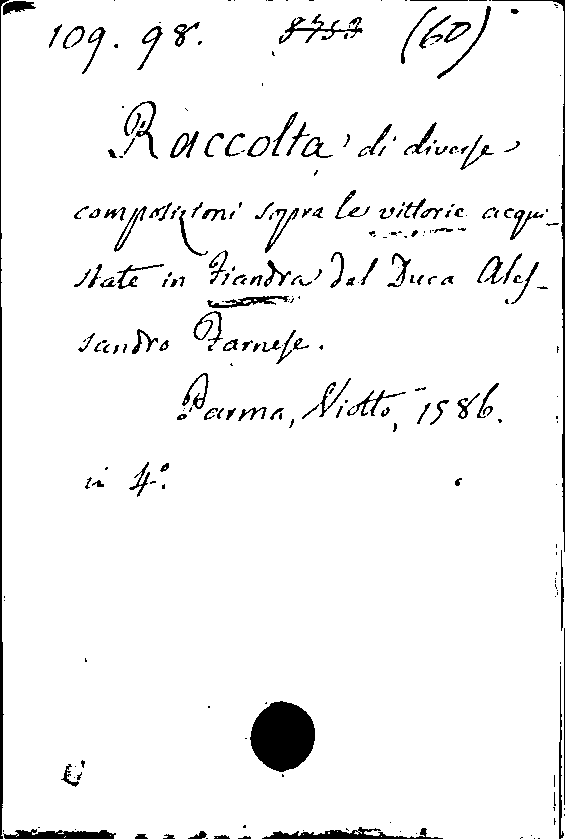 109. 98. 8753 (60)
Raccolta di diverse
composizioni sopra le vittorie acqui-
state in Fiandra dal Duca Ales-
sandro Farnese.
Parma, Viotto, 1586.
in 4º.